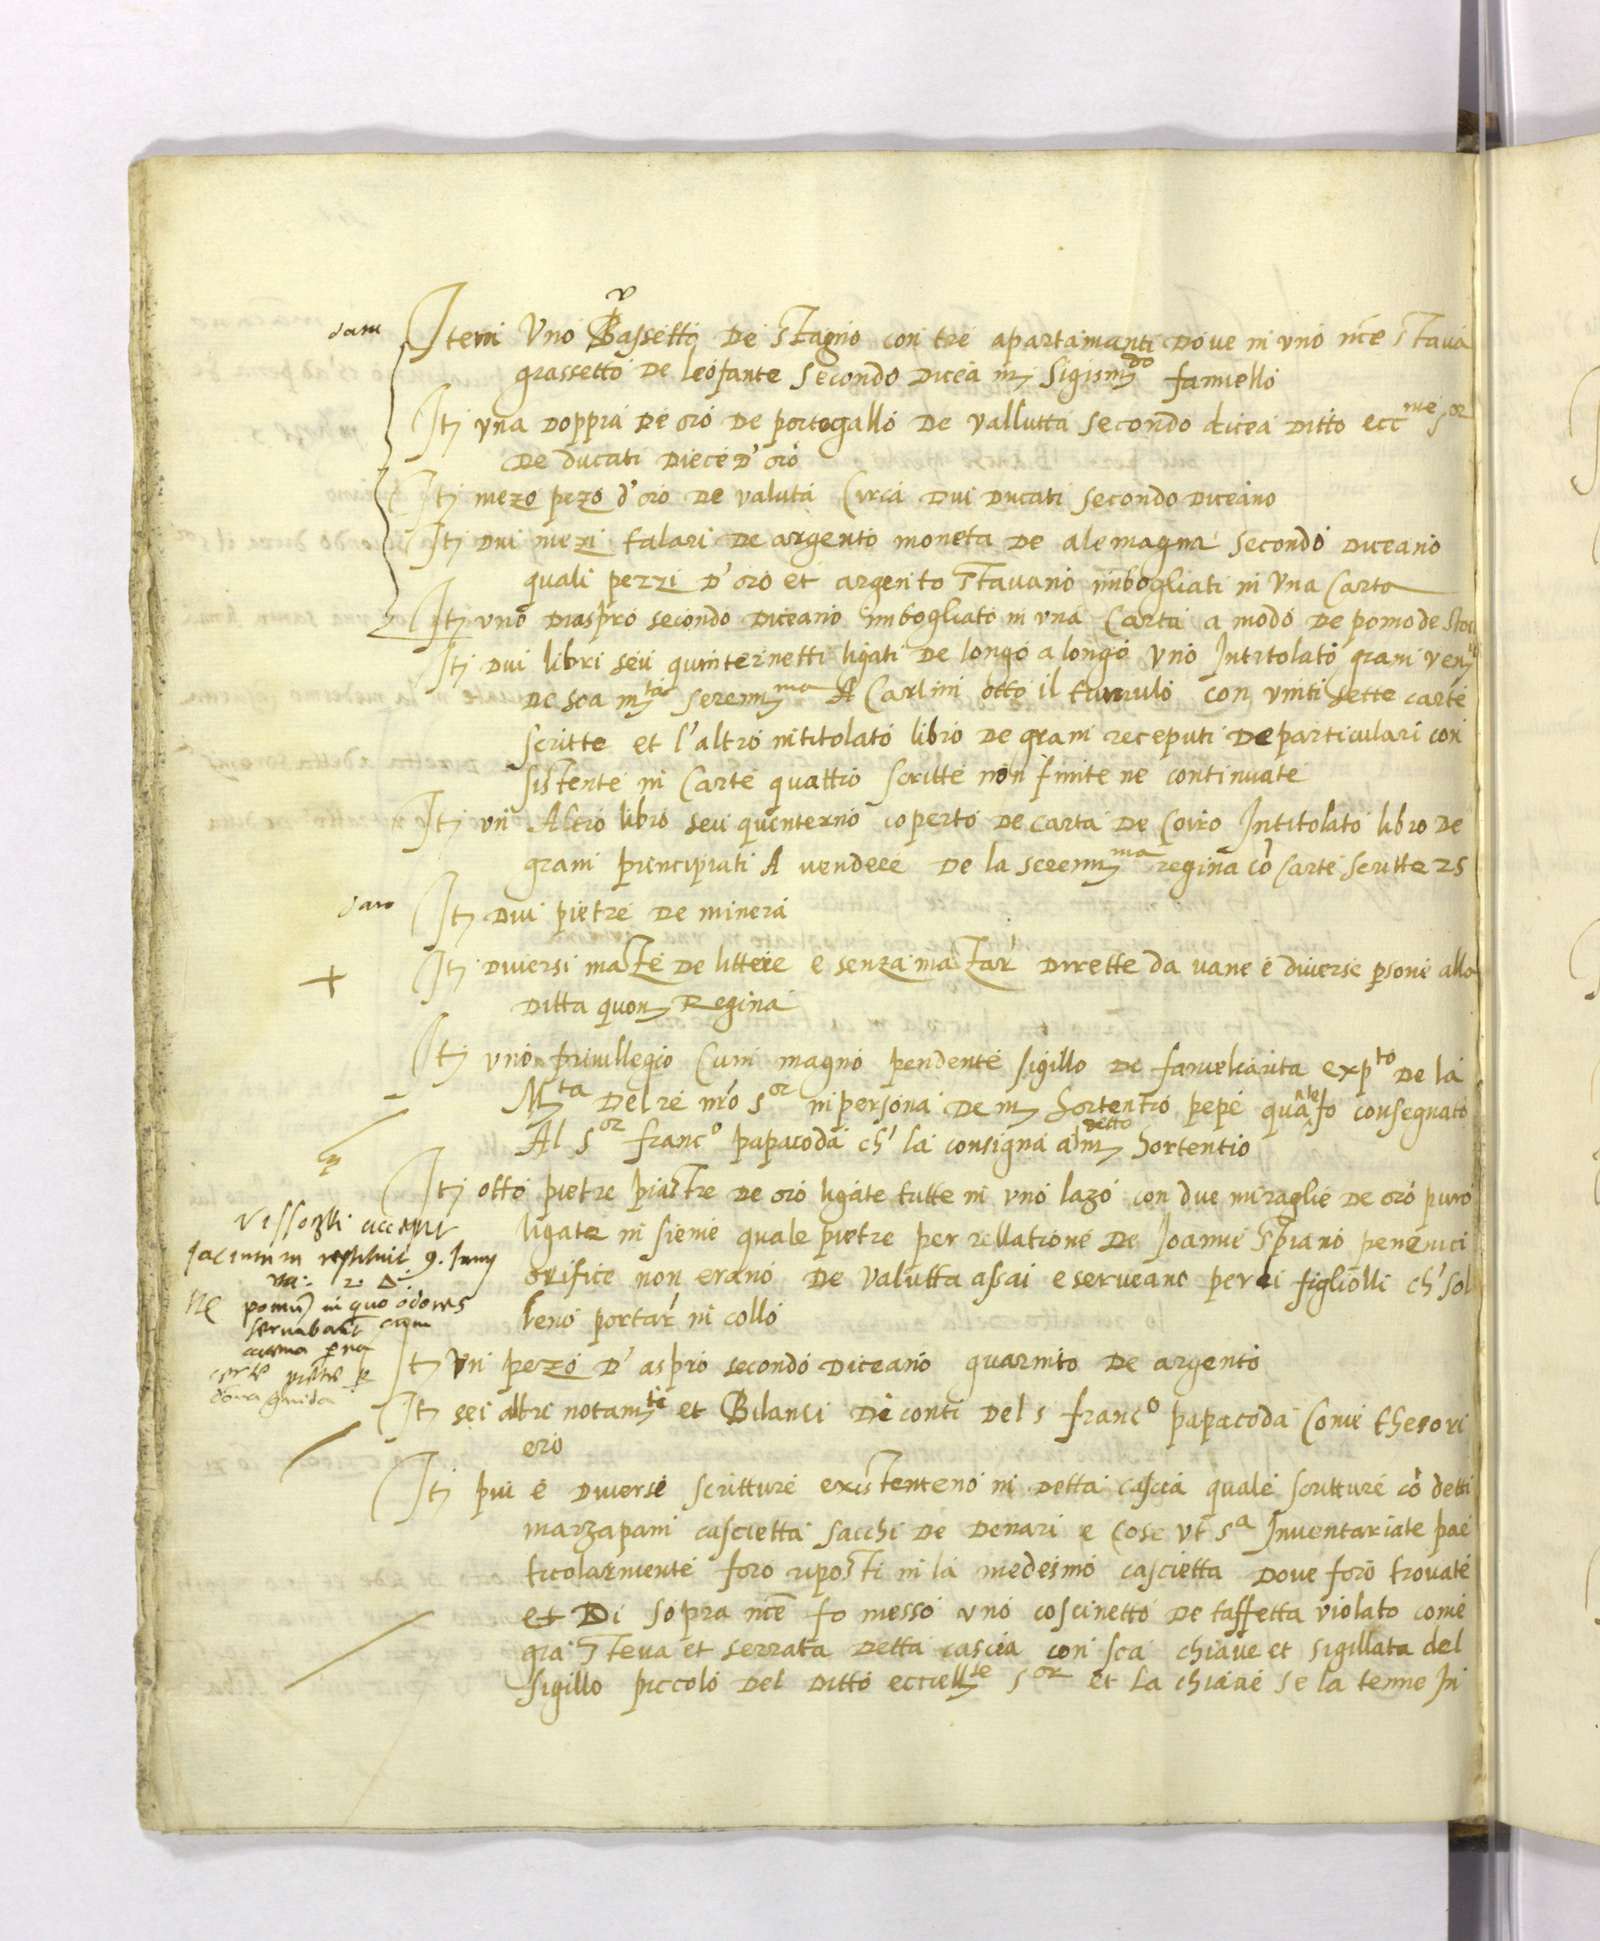 dam
Item Uno Bassetto de stagno con tre apartamanti dove in uno nce stava
grassetto de leofante secondo dicea m sigismdo fanuello
Itj una doppia de oro de portogallo de vallutta secondo dicea ditto eccme sor
de ducati diece d'oro
Itj mezo pezo d'oro de valuta circa dui ducati secondo diceano
Itj dui mezi talari de argento moneta de alemagna secondo diceano
quali pezzi d'oro et argento stavano imbogliati in una carta
Itj uno diaspro secondo diceano imbogliato in una carta a modo de pomo de
Itj dui libri seu quinternetti ligati de longo a longo uno Intitolato grani
de sea mtà serenma A carlini otto il tumulo con vinti sette carte
scritte et l'altro intitolato libro de grani receputi de particulari con
sistente in carte quattro scritte non finite ne continuate
Itj un Altro libro seu quinterno coperto de carta de coiro Intitolato libro de
grani principiati A vendere de la serenma regina cò carte scritte 25
Itj dui pietre de minera
+ Itj diversi mazze de littere e senza mazzar' dirette da varie e diverse psone alla
ditta quonm Regina
Itj uno privillegio cum magno pendente sigillo de expto de la
Mta del re nro sor in persona de m hortentio pepe quale fo consegnato
Al sor franco papacoda ch' la consigna al detto m hortentio
Itj otto pietre piastre de oro ligate tutte in uno lazo con due miraglie de oro puro
ligate insieme quale pietre per rellatione de Joanne
orifice non erano de valutta assai e serveano per li figliolli ch' sol
leno portar' in collo
restituit 9. Junij
pomum in quo odores
servabant
Itj un pezo d'aspro secondo diceano guarnito de argento
Itj sei altri notamti et Bilanci de conti del s franco papacoda come thesori
ero
Itj piu e diverse scritture existenteno in detta cascia quale scritture cò detti
marzapani cascietta sacchi de denari e cose ut sa Inventariate par
ticolarmente foro riposti in la medesimo cascietta dove foro trovate
et Di sopra nce fo messo uno coscinetto de taffetta violato come
gia steva et serrata detta cascia con sea chiave et sigillata del
sigillo piccolo del ditto eccellte sor et la chiave se la tenne In